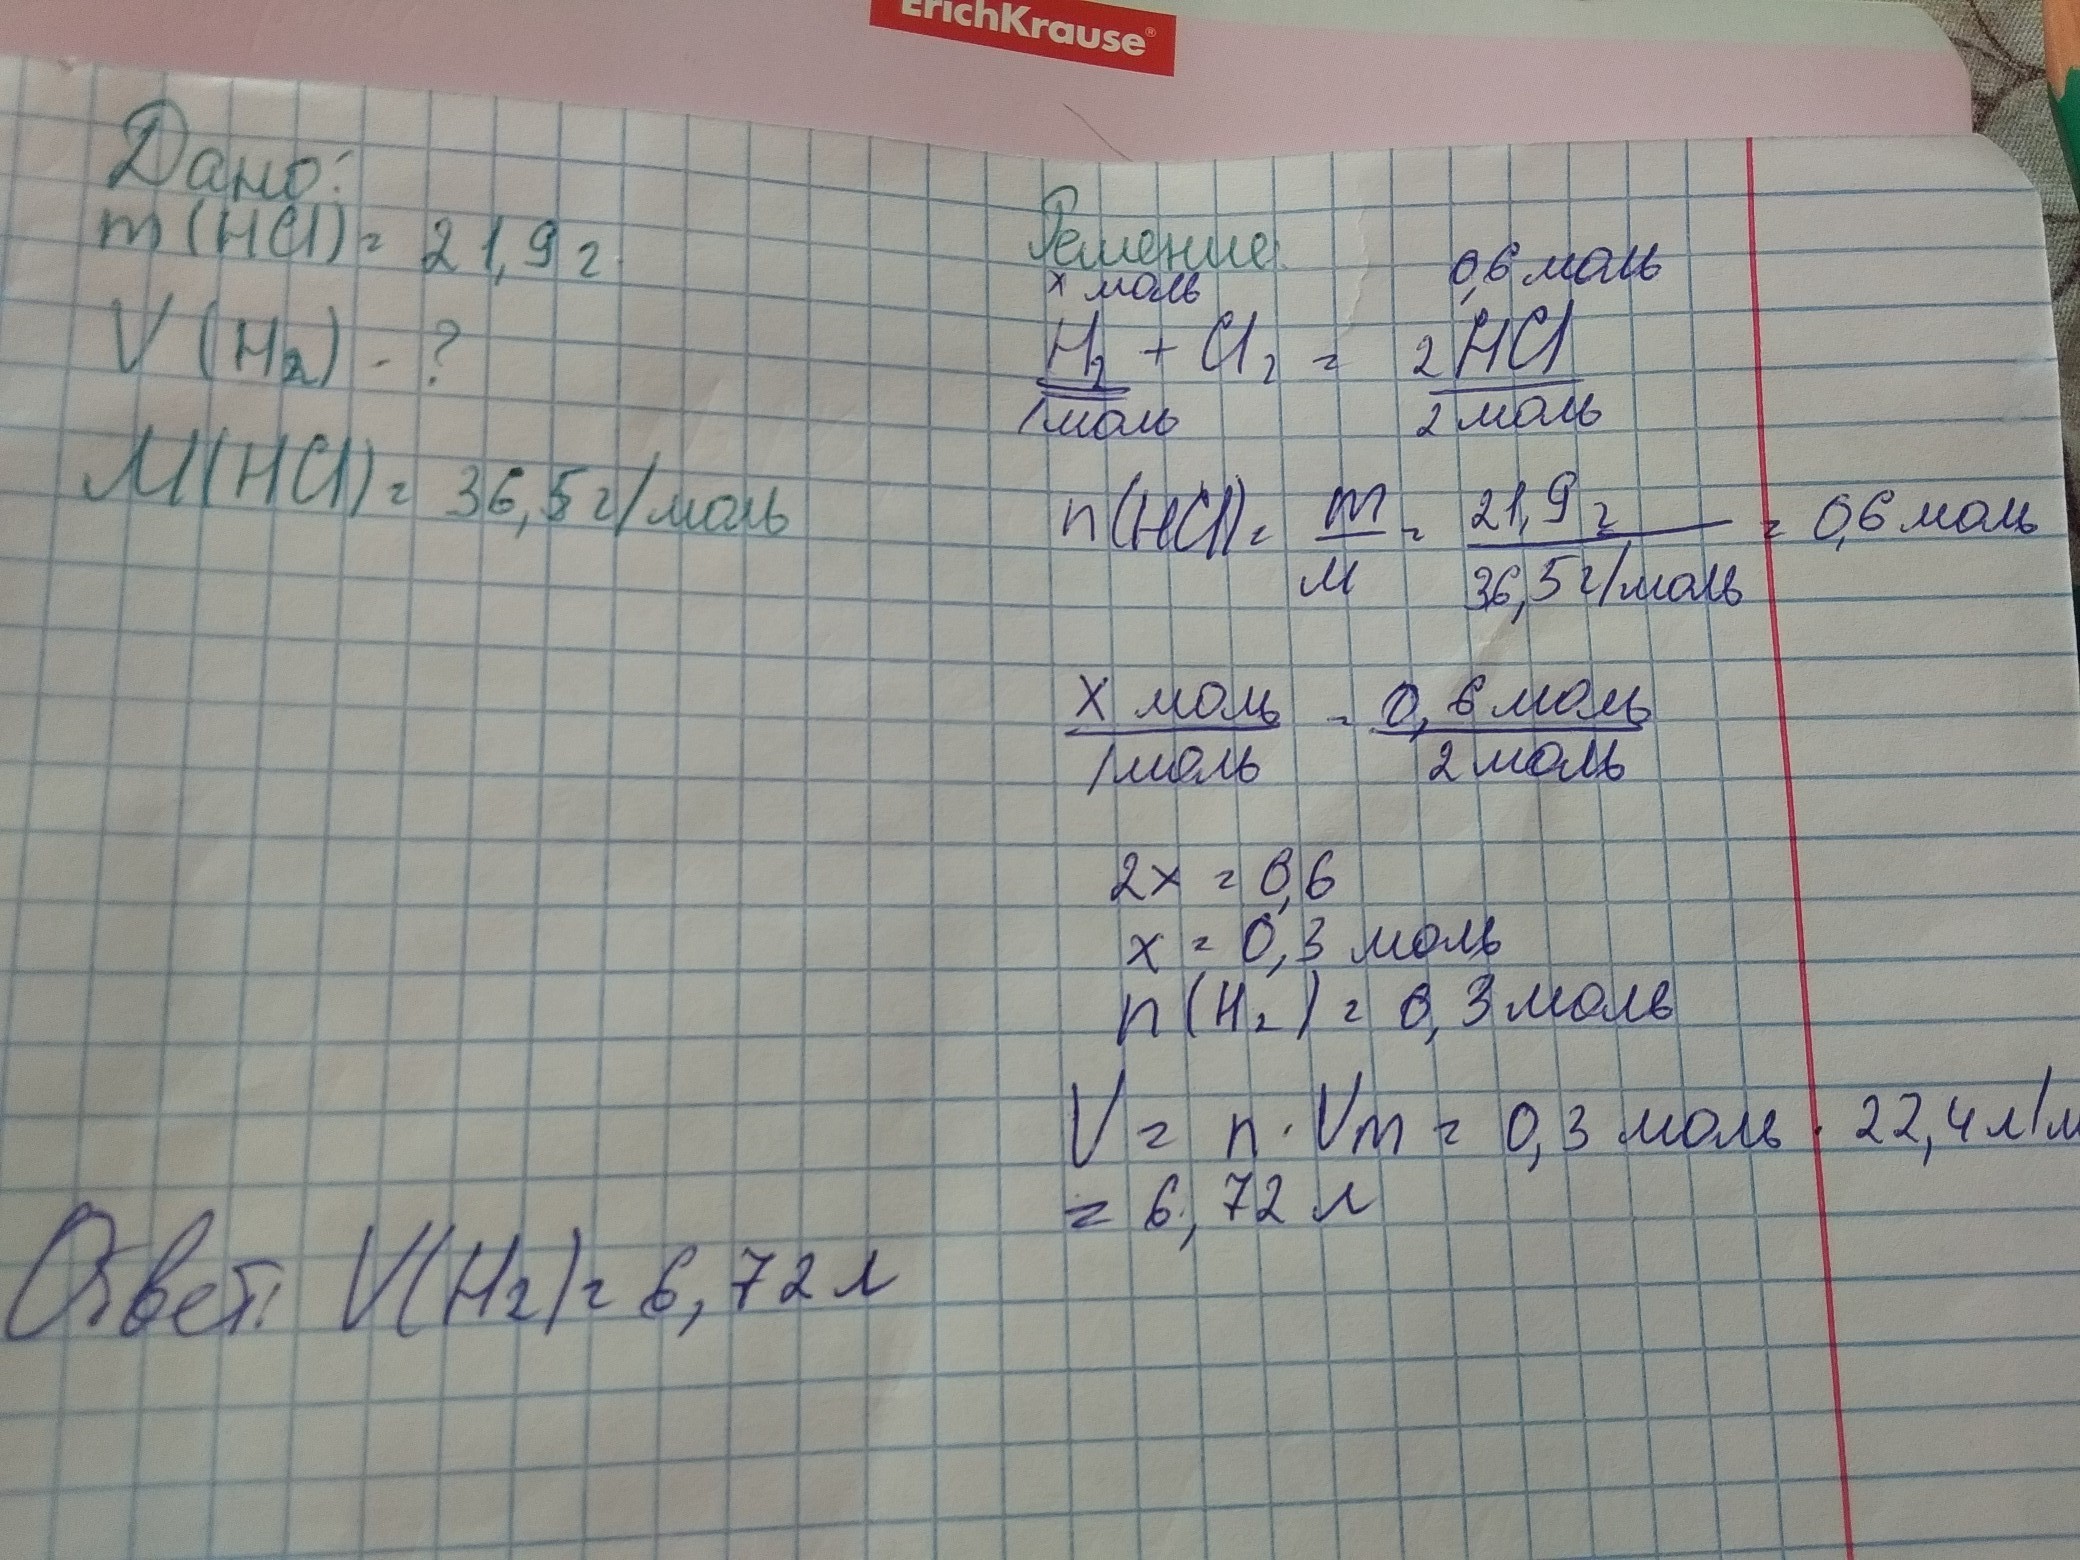 ErichKrause®
Дано:
m(HCl) = 21,9 г
V(H₂) - ?
M(HCl) = 36,5 г/моль
Решение:
x моль 0,6 моль
H₂ + Cl₂ = 2HCl
1моль 2 моль
n(HCl) = m/M = 21,9 г/36,5 г/моль = 0,6 моль
x моль/1моль = 0,6 моль/2 моль
2x = 0,6
x = 0,3 моль
n(H₂) = 0,3 моль
V = n · Vm = 0,3 моль · 22,4 л/м
= 6,72 л
Ответ: V(H₂) = 6,72 л